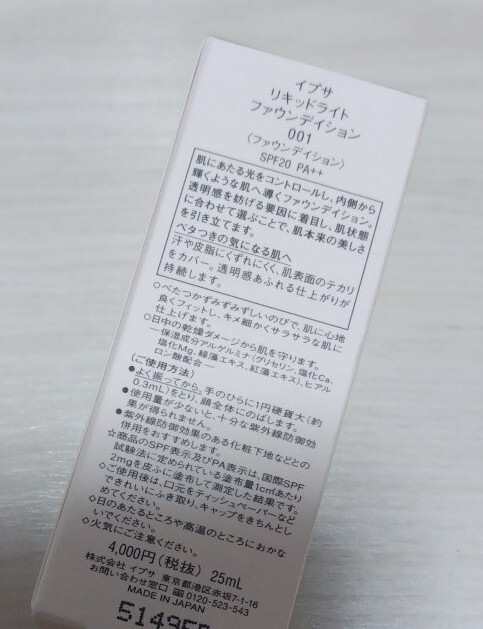 イプサ
リキッドライト
ファウンデイション
001
〈ファウンデイション〉
SPF20 PA++
肌にあたる光をコントロールし、内側から
輝くような肌へ導くファウンデイション。
透明感を妨げる要因に着目し、肌状態
に合わせて選ぶことで、肌本来の美しさ
を引き立てます。
ベタつきの気になる肌へ
汗や皮脂にくずれにくく、肌表面のテカリ
をカバー。透明感あふれる仕上がりが
持続します。
○べたつかずみずみずしいのびで、肌に心地
良くフィットし、キメ細かくサラサラな肌に
仕上げます。
○日中の乾燥ダメージから肌を守ります。
―保湿成分アルゲルミナ(グリセリン、塩化Ca、
塩化Mg、緑藻エキス、紅藻エキス)、ヒアル
ロン酸配合―
〈ご使用方法〉
●よく振ってから、手のひらに1円硬貨大(約
0.3mL)をとり、顔全体にのばします。
●使用量が少ないと、十分な紫外線防御効
果が得られません。
●紫外線防御効果のある化粧下地などとの
併用をおすすめします。
☆商品のSPF表示及びPA表示は、国際SPF
試験法に定められている塗布量1cm²あたり
2mgを皮ふに塗布して測定した結果です。
◇ご使用後は、口元をティッシュペーパーなど
できれいにふき取り、キャップをきちんとし
めてください。
◇日のあたるところや高温のところにおかな
いでください。
◇火気にご注意ください。
4,000円(税抜) 25mL
株式会社 イプサ 東京都港区赤坂7-1-16
お問い合わせ窓口 0120-523-543
MADE IN JAPAN